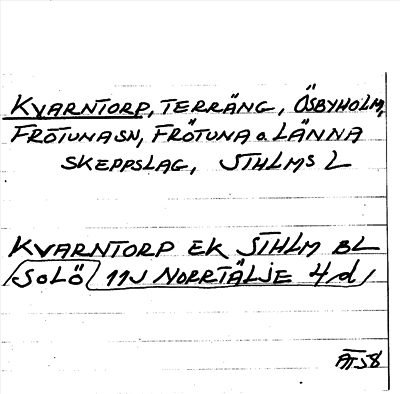 KVARNTORP, TERRÄNG, ÖSBYHOLM,
FRÖTUNA SN, FRÖTUNA o. LÄNNA
SKEPPSLAG, STHLMS L
KVARNTORP EK STHLM BL
SOLÖ 11J NORRTÄLJE 4d
ÄT58